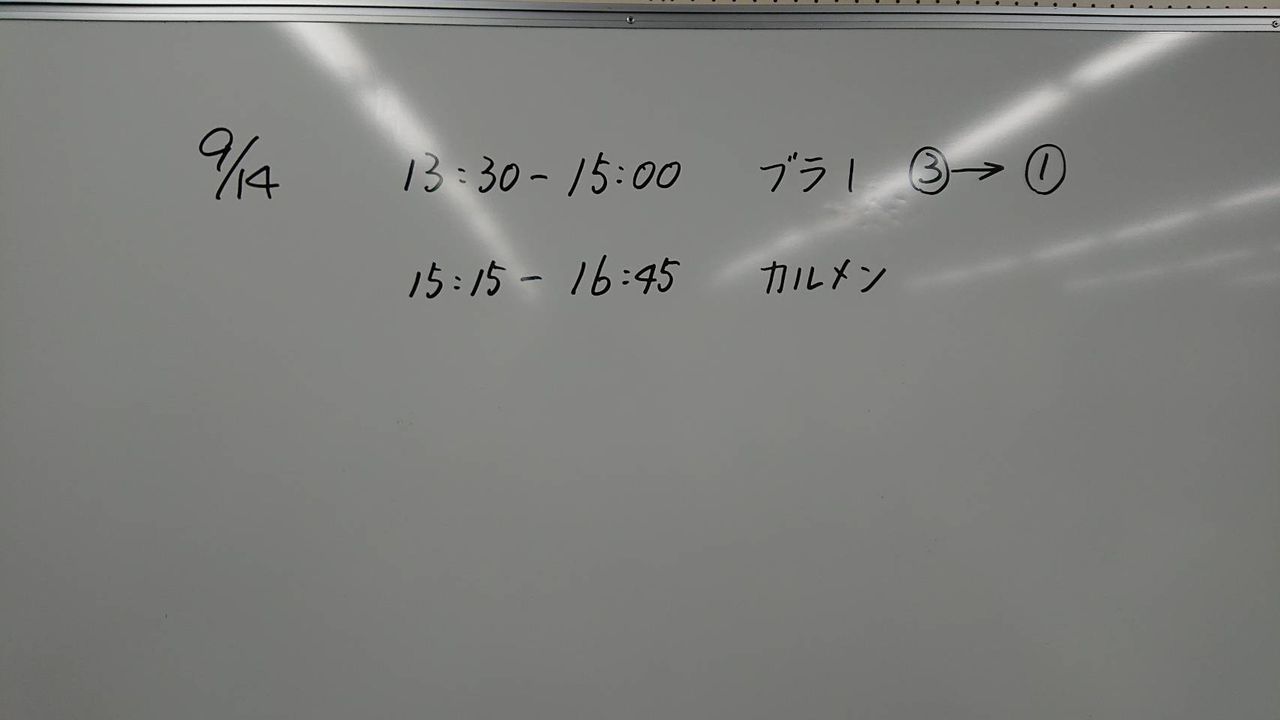 9/14 13:30-15:00 ブラ1 ③→①
15:15-16:45 カルメン